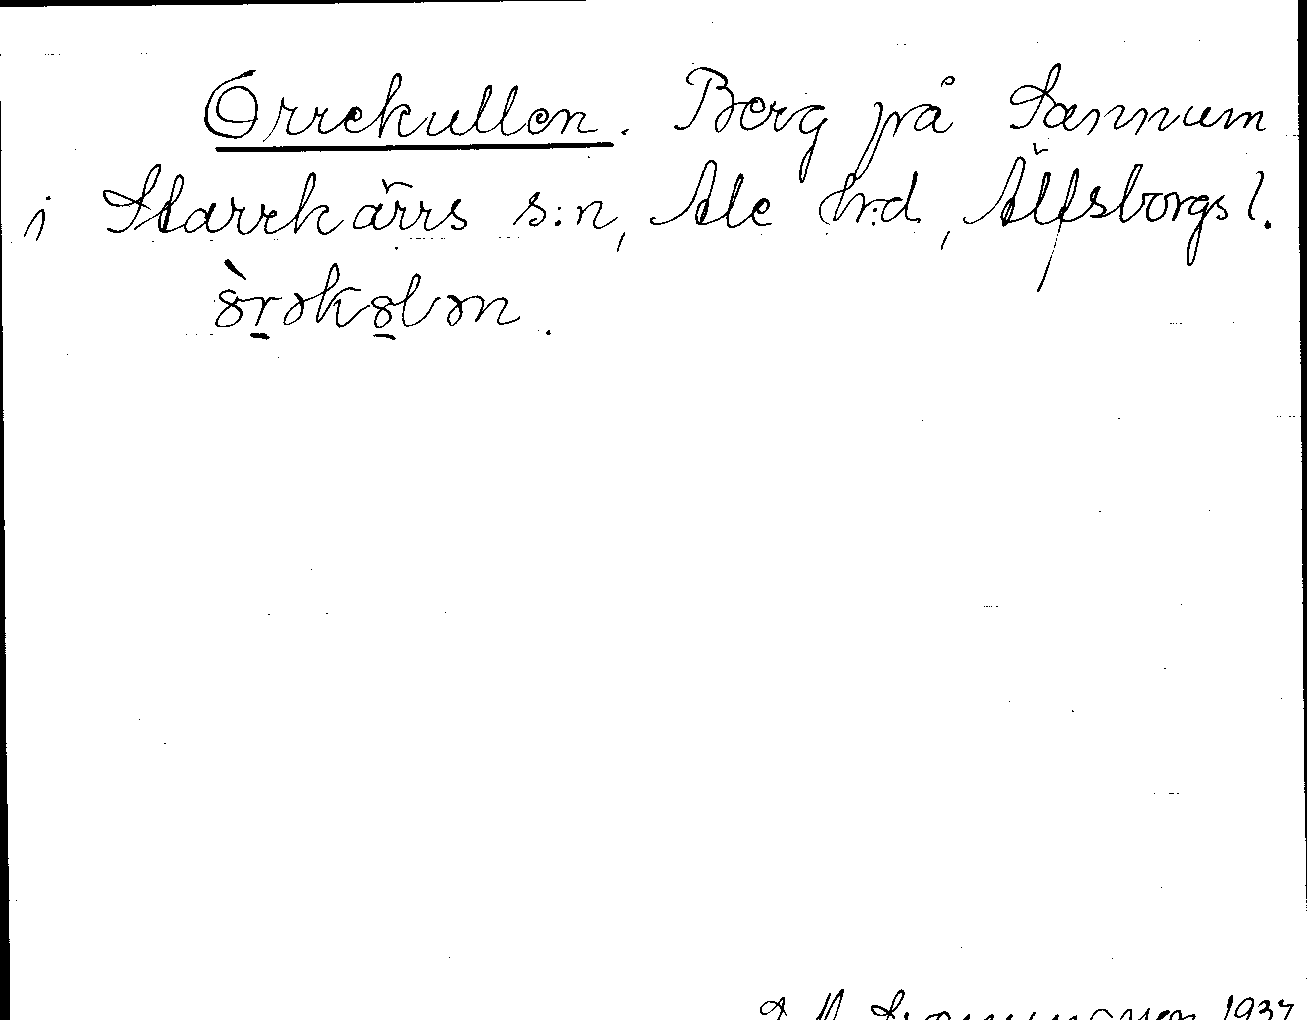 Orrekullen. Berg på Sannum
i Starrkärrs s:n, Ale hrd, Älfsborgs l.
1937